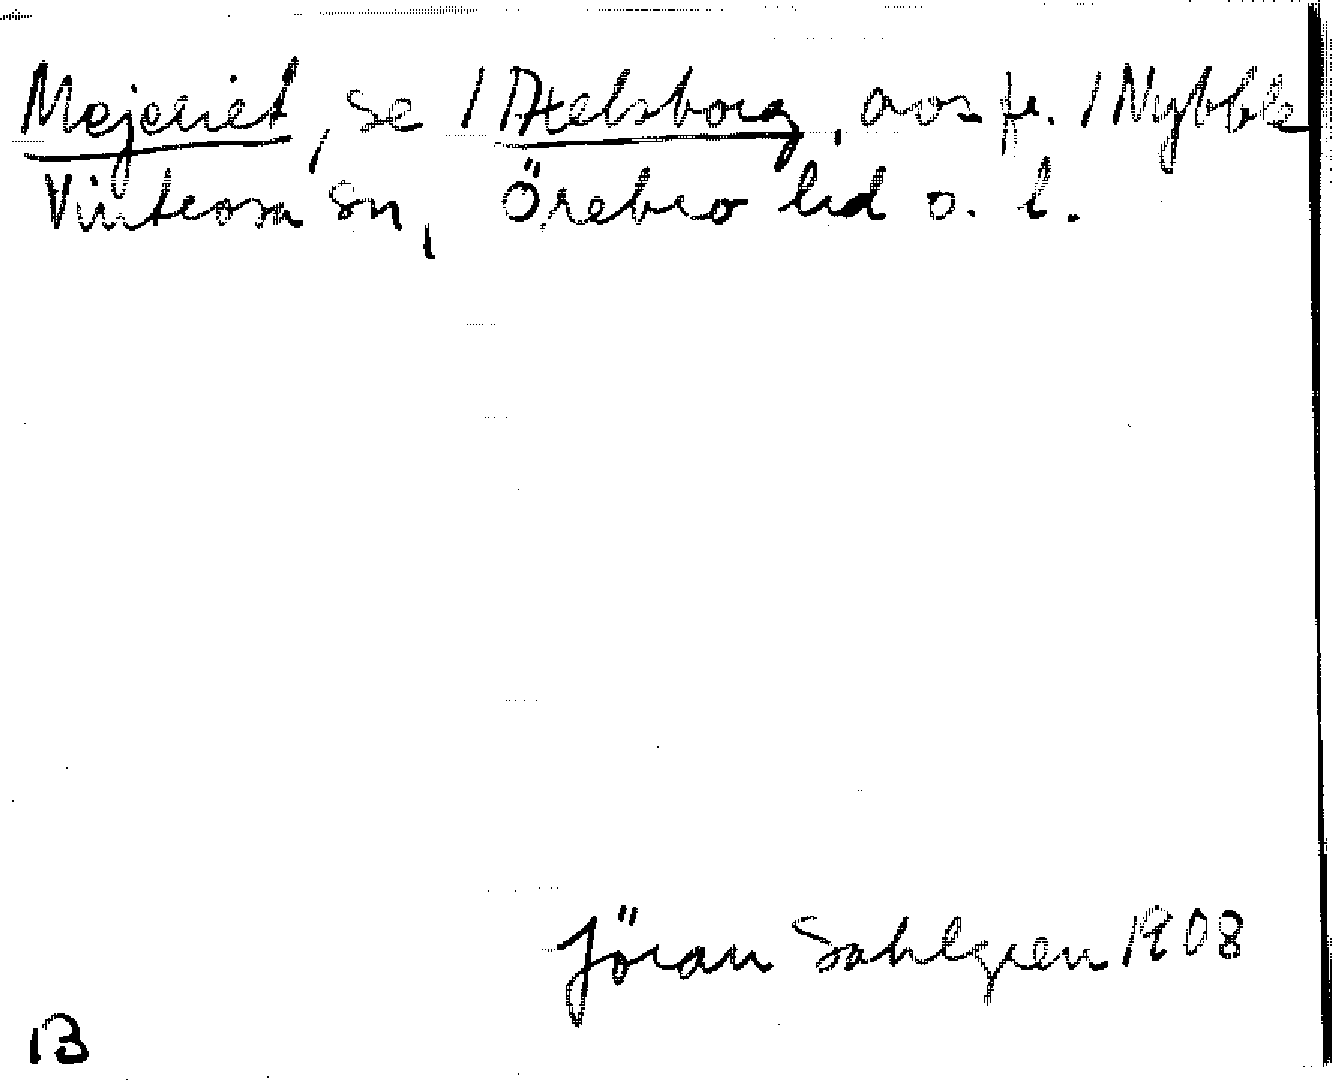 Mejeriet, se / Axelsborg, avs. fr. / Nybble
Vintrosa sn, Örebro hd o. l.
Jöran Sahlgren 1908
B